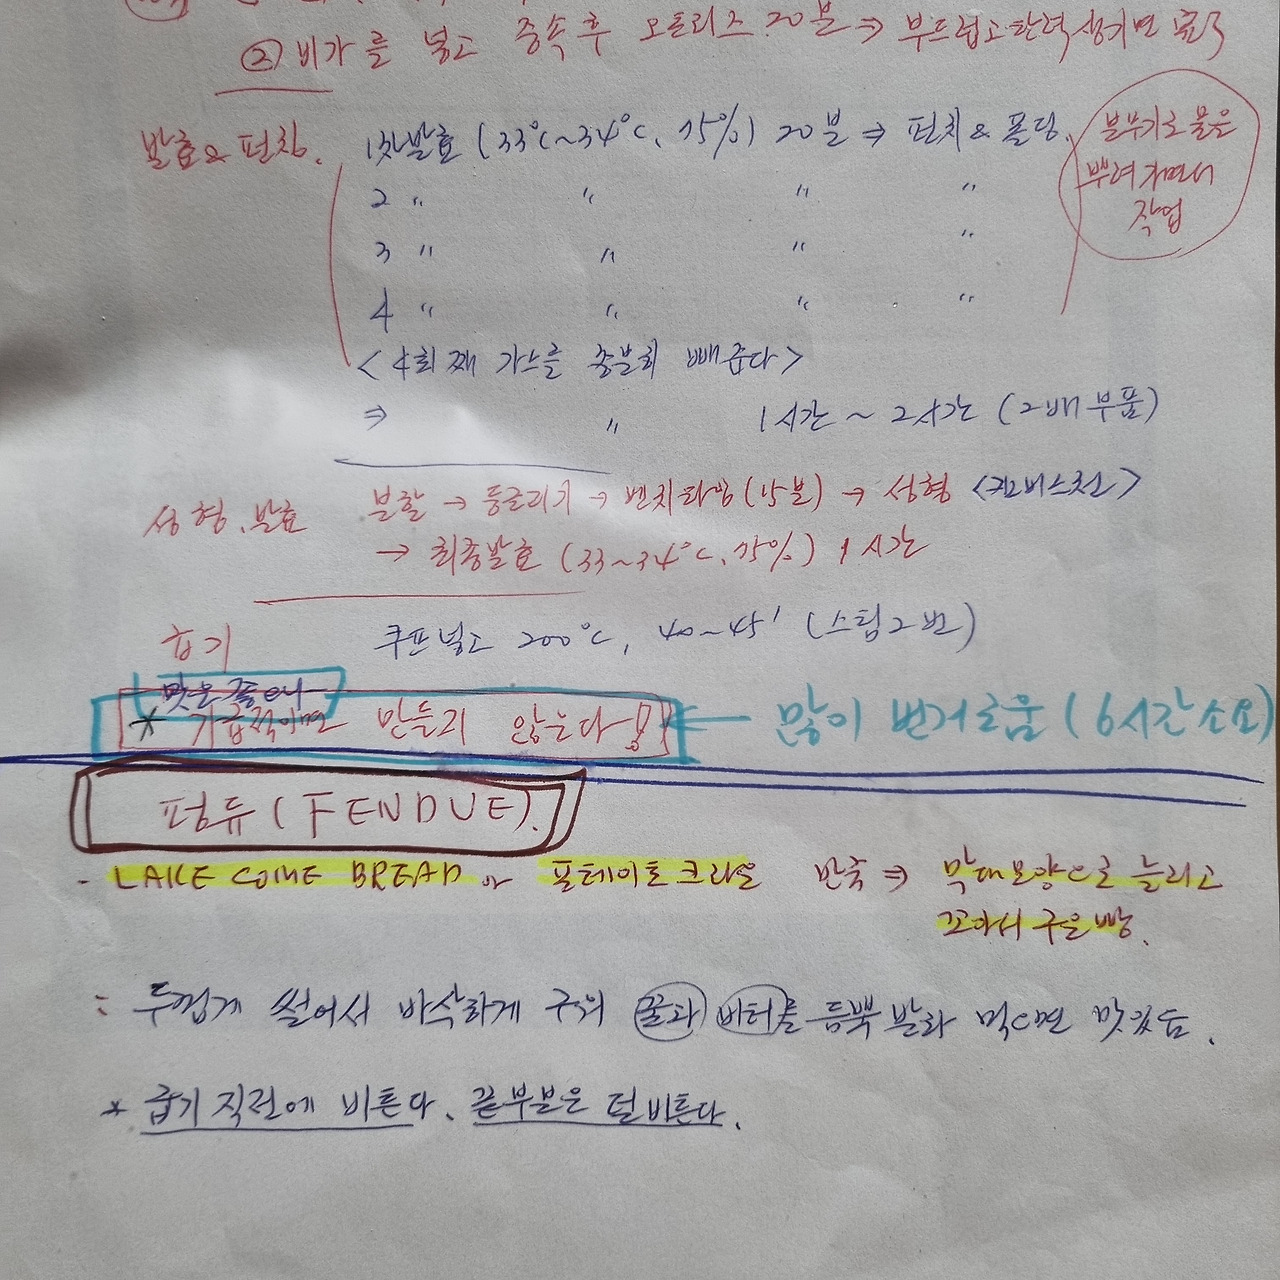 ② 비가를 넣고 중속 후 오토리즈 20분 ⇒ 부드럽고 탄력 생기면 완료
발효 & 펀치. 1차발효 (33°C~34°C, 75%) 20분 ⇒ 펀치 & 폴딩.
분무기로 물을
뿌려가면서
작업
2 〃 〃 〃 〃
3 〃 〃 〃 〃
4 〃 〃 〃 〃
<4회째 가스를 충분히 빼준다>
⇒ 〃 1시간 ~ 2시간 (2배 부품)
성형. 발효 분할 → 둥글리기 → 벤치타임 (15분) → 성형 <캔버스천>
→ 최종발효 (33~34°C, 75%) 1시간
굽기 쿠프넣고 200°C, 40~45' (스팀2번)
맛은 좋으나
* 가급적이면 만들지 않는다!! ← 많이 번거로움 (6시간 소요)
펑듀 (FENDUE).
- LAKE COME BREAD or 포테이토 크라운 반죽 ⇒ 막대모양으로 늘리고
꼬아서 구운 빵.
: 두껍게 썰어서 바삭하게 구워 꿀과 버터를 듬뿍 발라 먹으면 맛있음.
* 굽기 직전에 비튼다. 끝부분은 덜 비튼다.